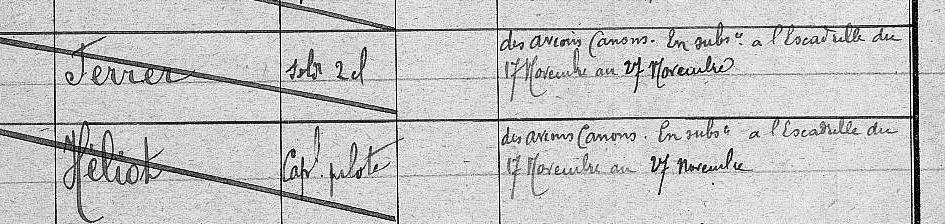 des avions Canons. En subs^ce a l'Escadrille du
Ferrer solt 2 cl 17 Novembre au 27 Novembre
des avions Canons. En subs^ce a l'Escadrille du
Héliot Cap^l. pilote 17 Novembre au 27 Novembre